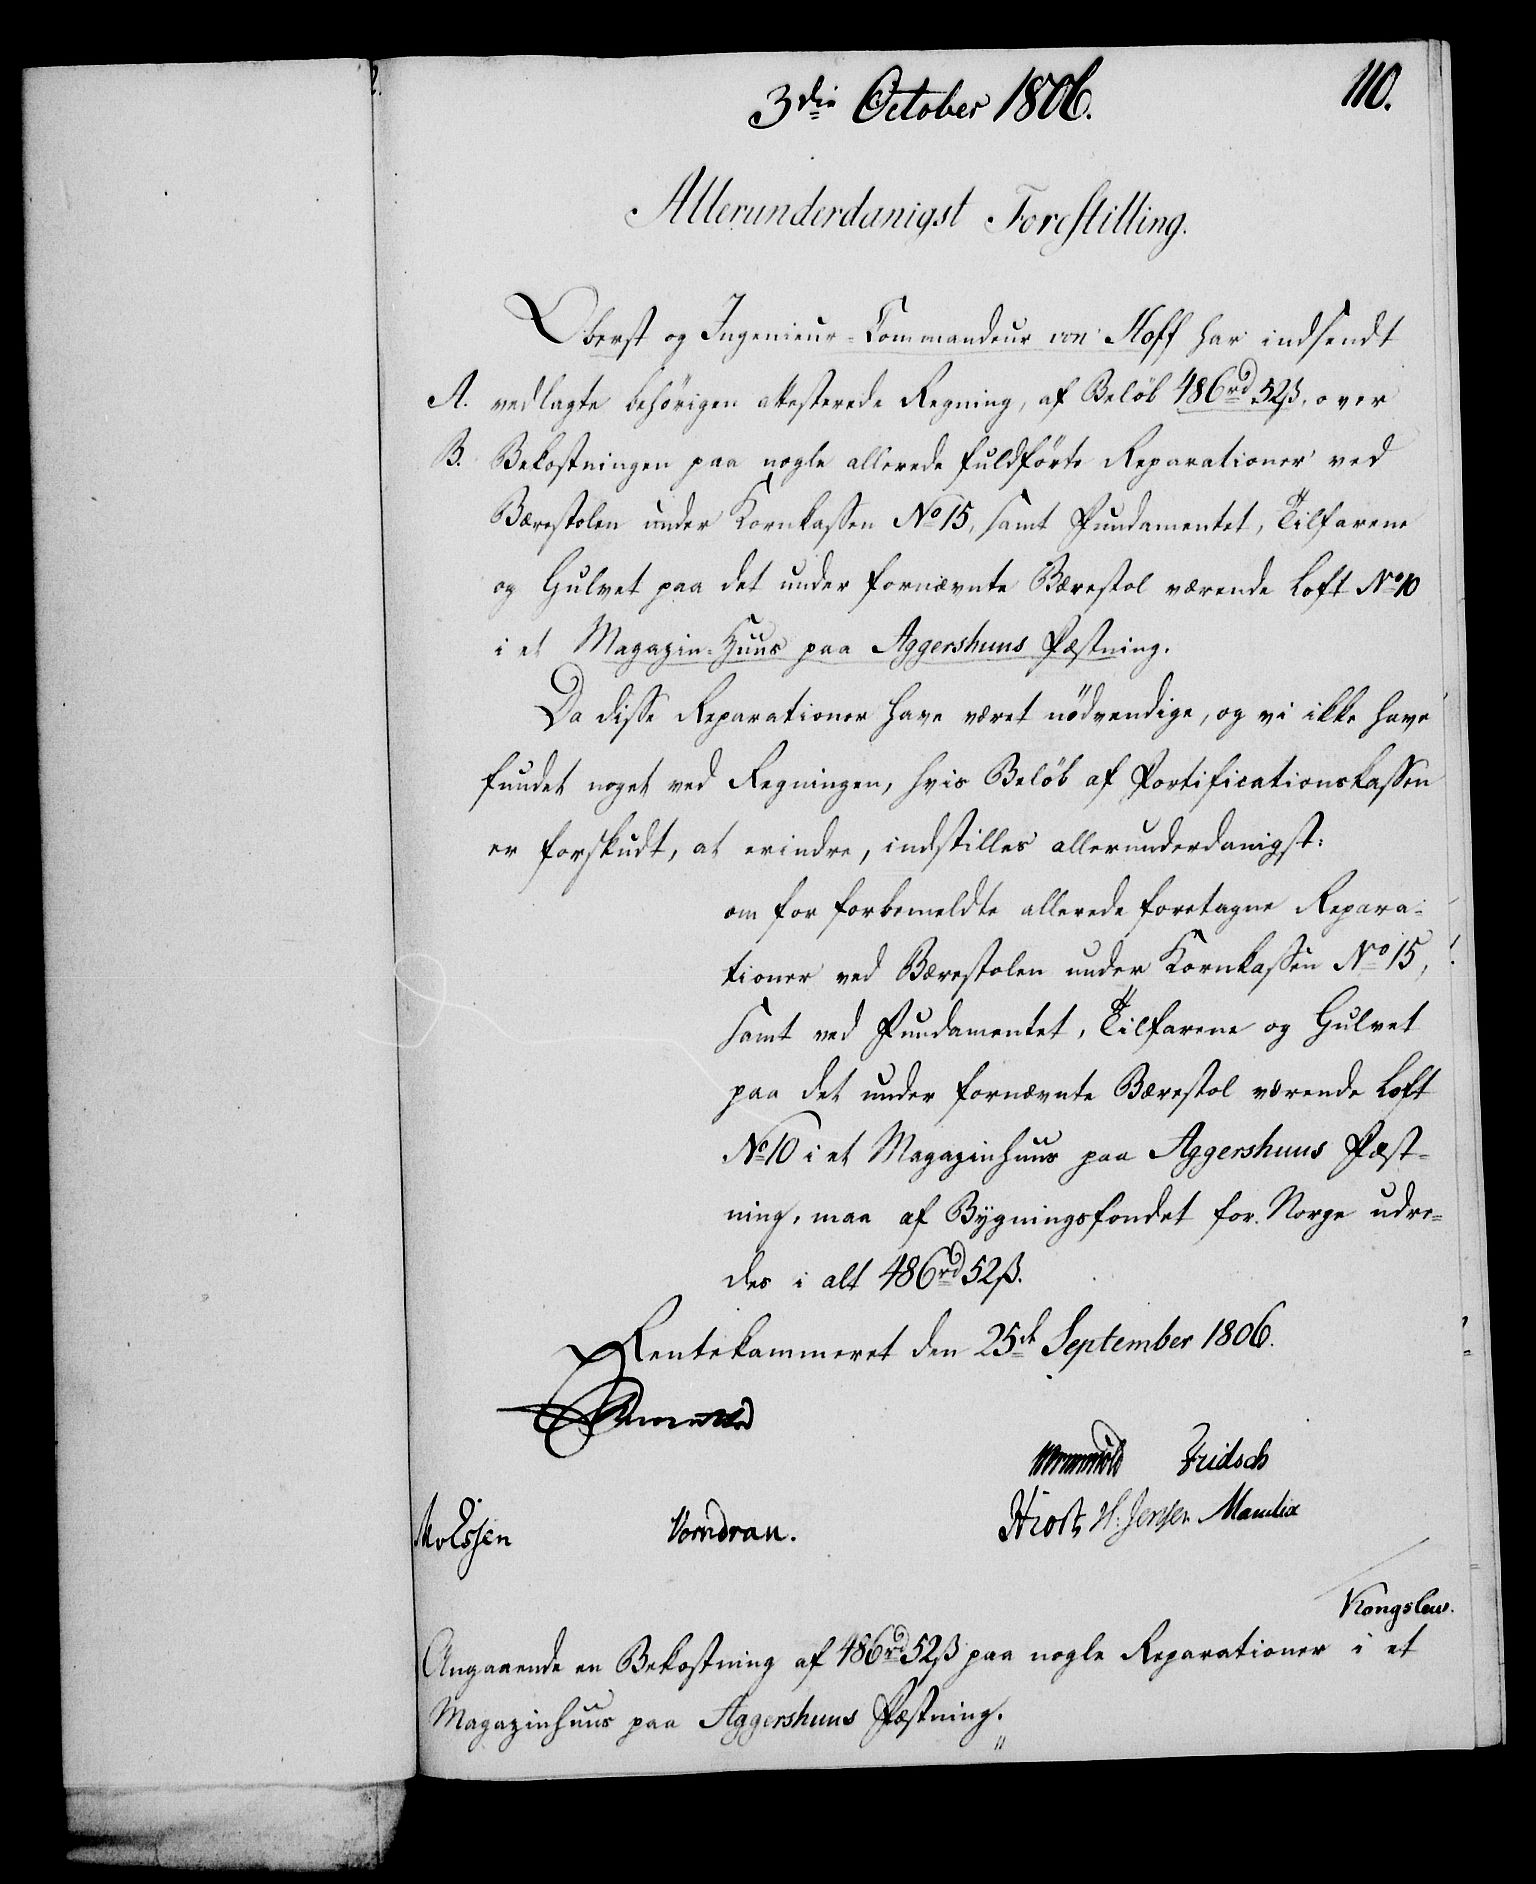 3die October 1806.
110.
Allerunderdanigst Forestilling.
Oberst og Ingenieur-Commandeur von Hoff har indsendt
A. vedlagte behörigen attesterede Regning, af Beløb 486rd 52ß. over
B. Bekostningen paa nogle allerede fuldförte Reparationer ved
Bærestolen under Kornkassen No 15, samt Fundamentet, Tilfarene
og Gulvet paa det under fornævnte Bærestol værende Loft No 10
i et Magazin-Huus paa Aggershuus Fæstning.
Da disse Reparationer have været nödvendige, og vi ikke have
fundet noget ved Regningen, hvis Beløb af Fortificationskassen
er forskudt, at erindre, indstilles allerunderdanigst:
om for forbemeldte allerede foretagne Repara-
tioner ved Bærestolen under Kornkassen No 15,
samt ved Fundamentet, Tilfarene og Gulvet
paa det under fornævnte Bærestol værende Loft
No 10 i et Magazinhuus paa Aggershuus Fæst-
ning, maa af Bygningsfondet for Norge udre-
des i alt 486rd 52ß.
Rentekammeret den 25de September 1806.
Fridsch
Hiort H. Jensen Manthey
Vorndran.
Kongslew.
Angaaende en Bekostning af 486rd 52ß paa nogle Reparationer i et
Magazinhuus paa Aggershuus Fæstning.